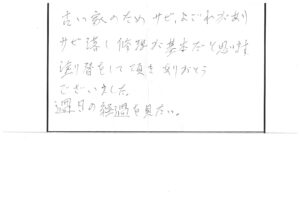 古い家のため サビ、よごれがあり
サビ落し修理が基本だと思います
塗り替をして頂きありがとう
ございました。
週日の経過を見たい。